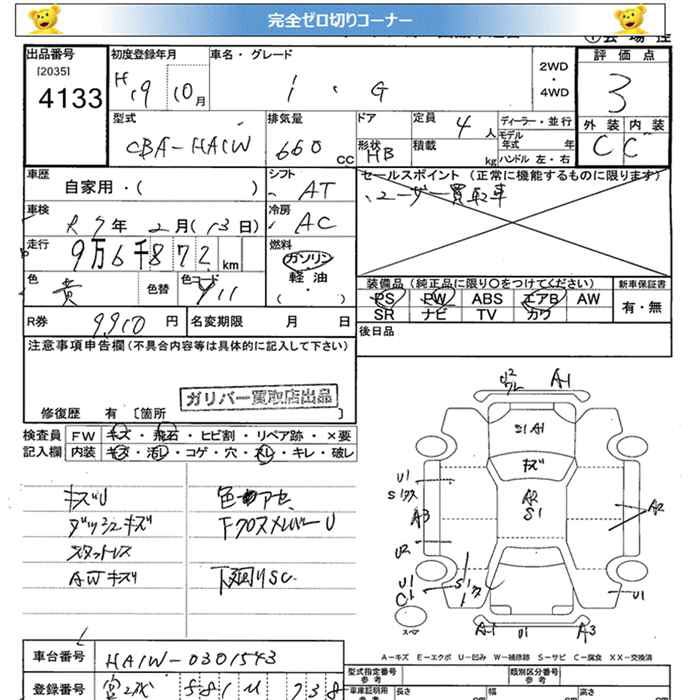 完全ゼロ切りコーナー
①会場控
出品番号 初度登録年月 車名・グレード 評価点
[2035] 4133 H19 10月 i・G 2WD・4WD 3
型式 排気量 ドア 定員 ディーラー・並行 外装 内装
CBA-HA1W 660CC 4人 モデル年式 年 C C
形状 HB 積載 kg ハンドル 左・右
車歴 シフト セールスポイント (正常に機能するものに限ります)
自家用・( ) AT ユーザー買取車
車検 冷房
R7年2月(13日) AC
走行 燃料
9万6千872km ガソリン
軽油
・
( )
色 色替 色コード 装備品(純正品に限り○をつけてください) 新車保証書
黄 Y11 PS PW ABS エアB AW 有・無
SR ナビ TV カワ
R券 9,910円 名変期限 月 日 後日品
注意事項申告欄(不具合内容等は具体的に記入して下さい)
ガリバー買取店出品
修復歴 有 [箇所 ]
検査員 FW キズ・飛石・ヒビ割・リペア跡・×要
記入欄 内装 キズ・汚レ・コゲ・穴・スレ・キレ・破レ
キズU 色アセ
ダッシュキズ 下クロスメンバーU
スタットレス
AWキズ 下廻りSC
A1
S1 A1
キズ
A2
S1
U1
A3
U2
A2
U1
C1
U1
スペア
A1 U1 A3
A-キズ E-エクボ U-凹み W-補修跡 S-サビ C-腐食 XX-交換済
車台番号 HA1W-0301543
型式指定番号 参考 類別区分番号 参考
登録番号 581
車庫証明用 参考 長さ cm 幅 cm 高さ cm